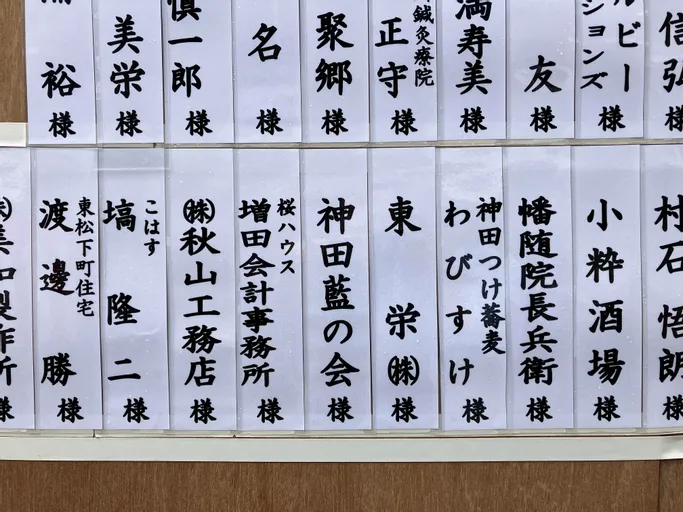 信弘 様
ルビー
ションズ 様
友 様
満寿美 様
鍼灸療院
正守 様
聚郷 様
名 様
慎一郎 様
美栄 様
裕 様
村石 悟朗 様
小粋酒場 様
幡随院長兵衛 様
神田つけ蕎麦
わびすけ 様
東栄㈱ 様
神田藍の会 様
桜ハウス
増田会計事務所 様
㈱秋山工務店 様
こはす
塙 隆二 様
東松下町住宅
渡邊 勝 様
㈱美和製作所 様